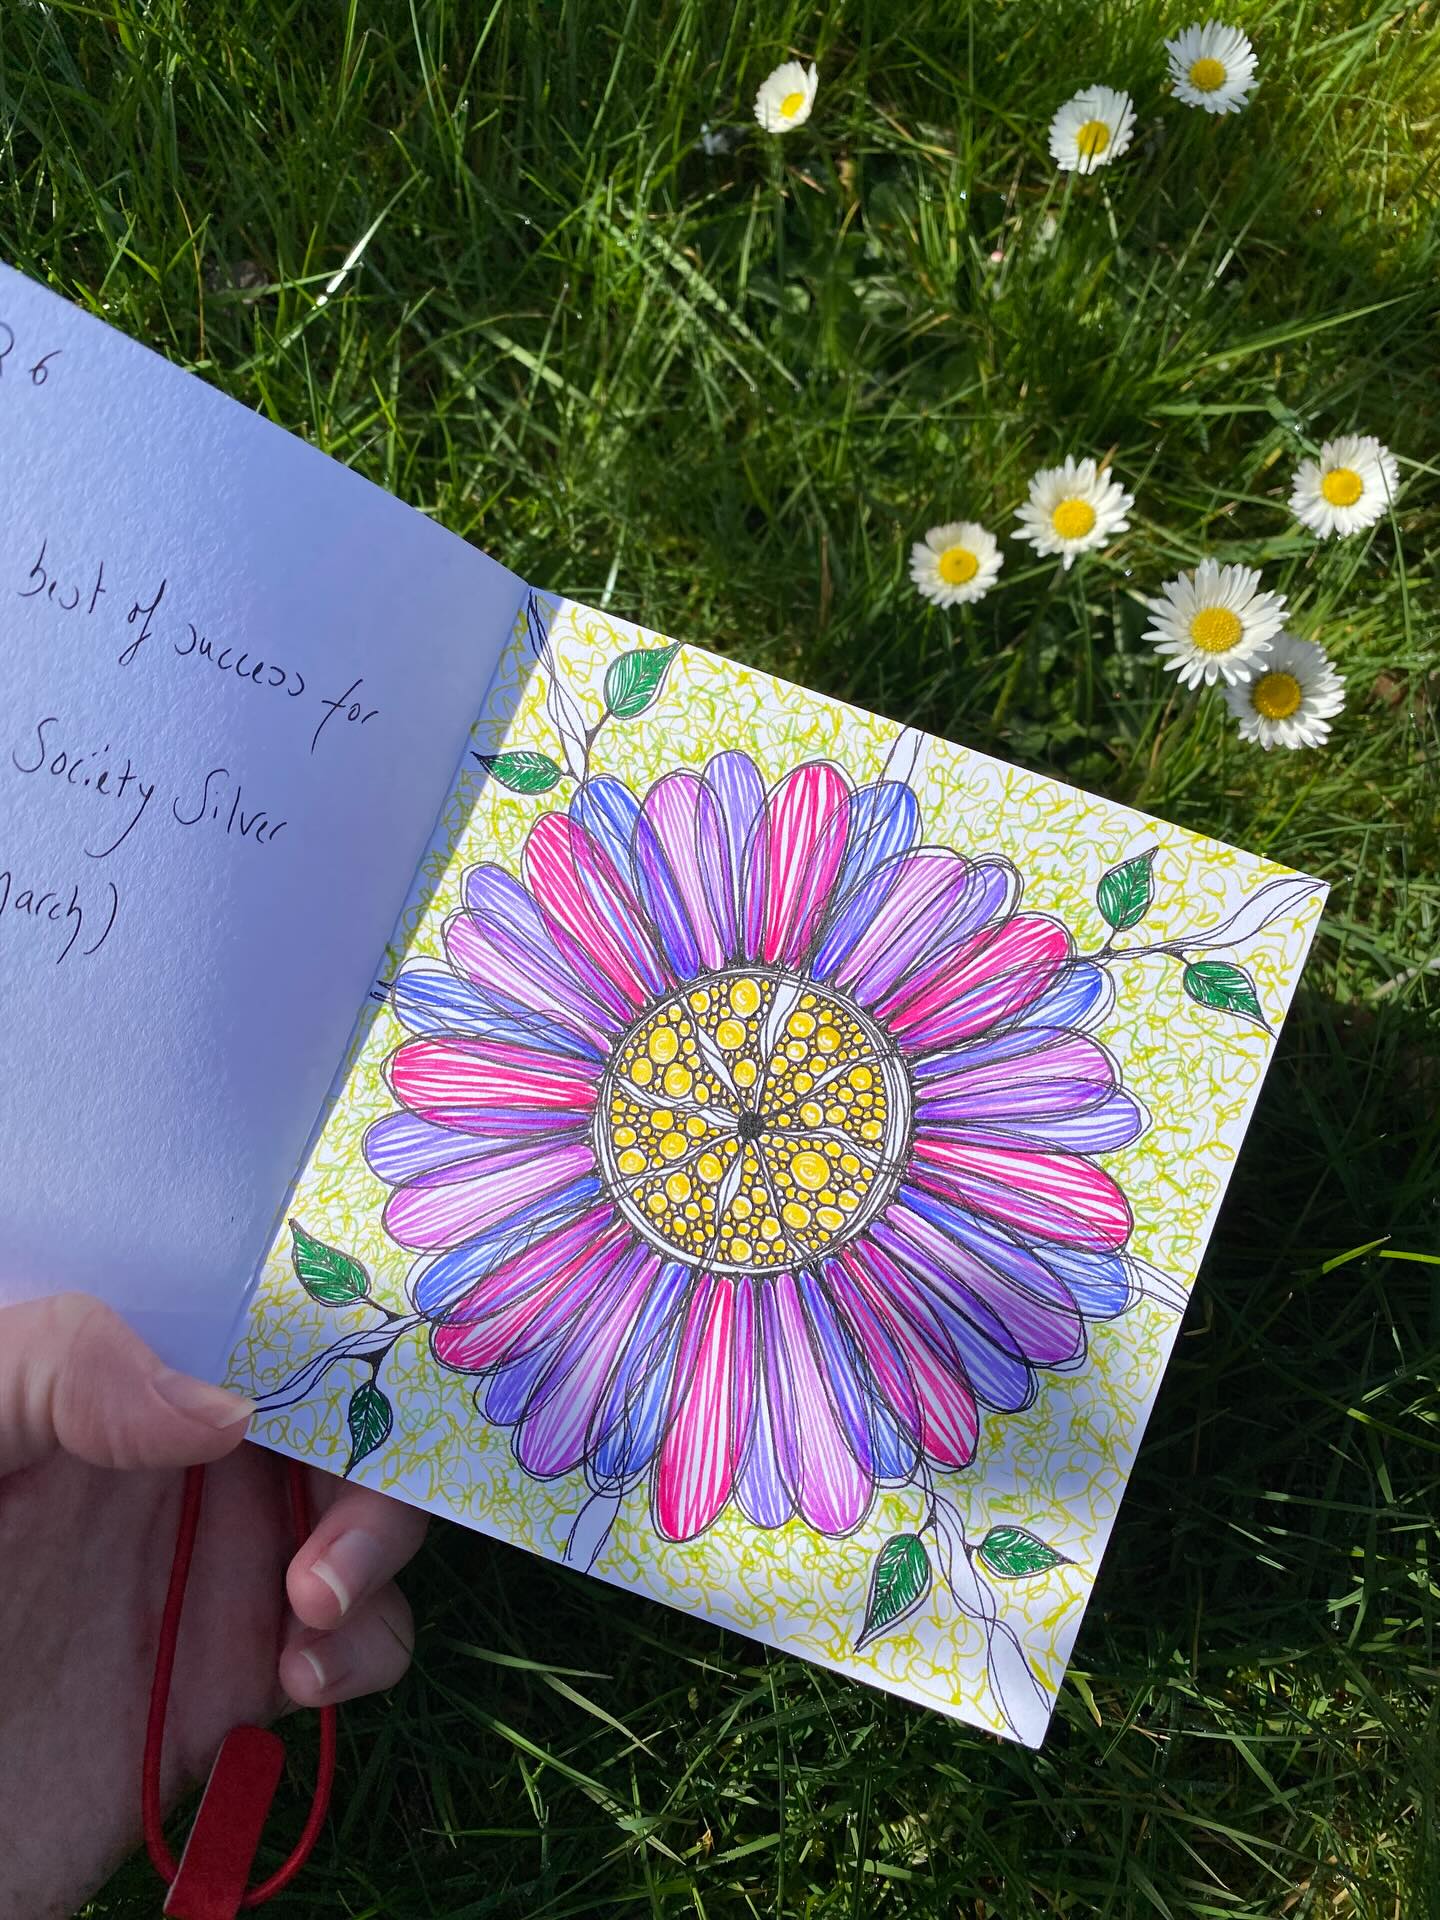 6
best of success for
Society Silver
March)